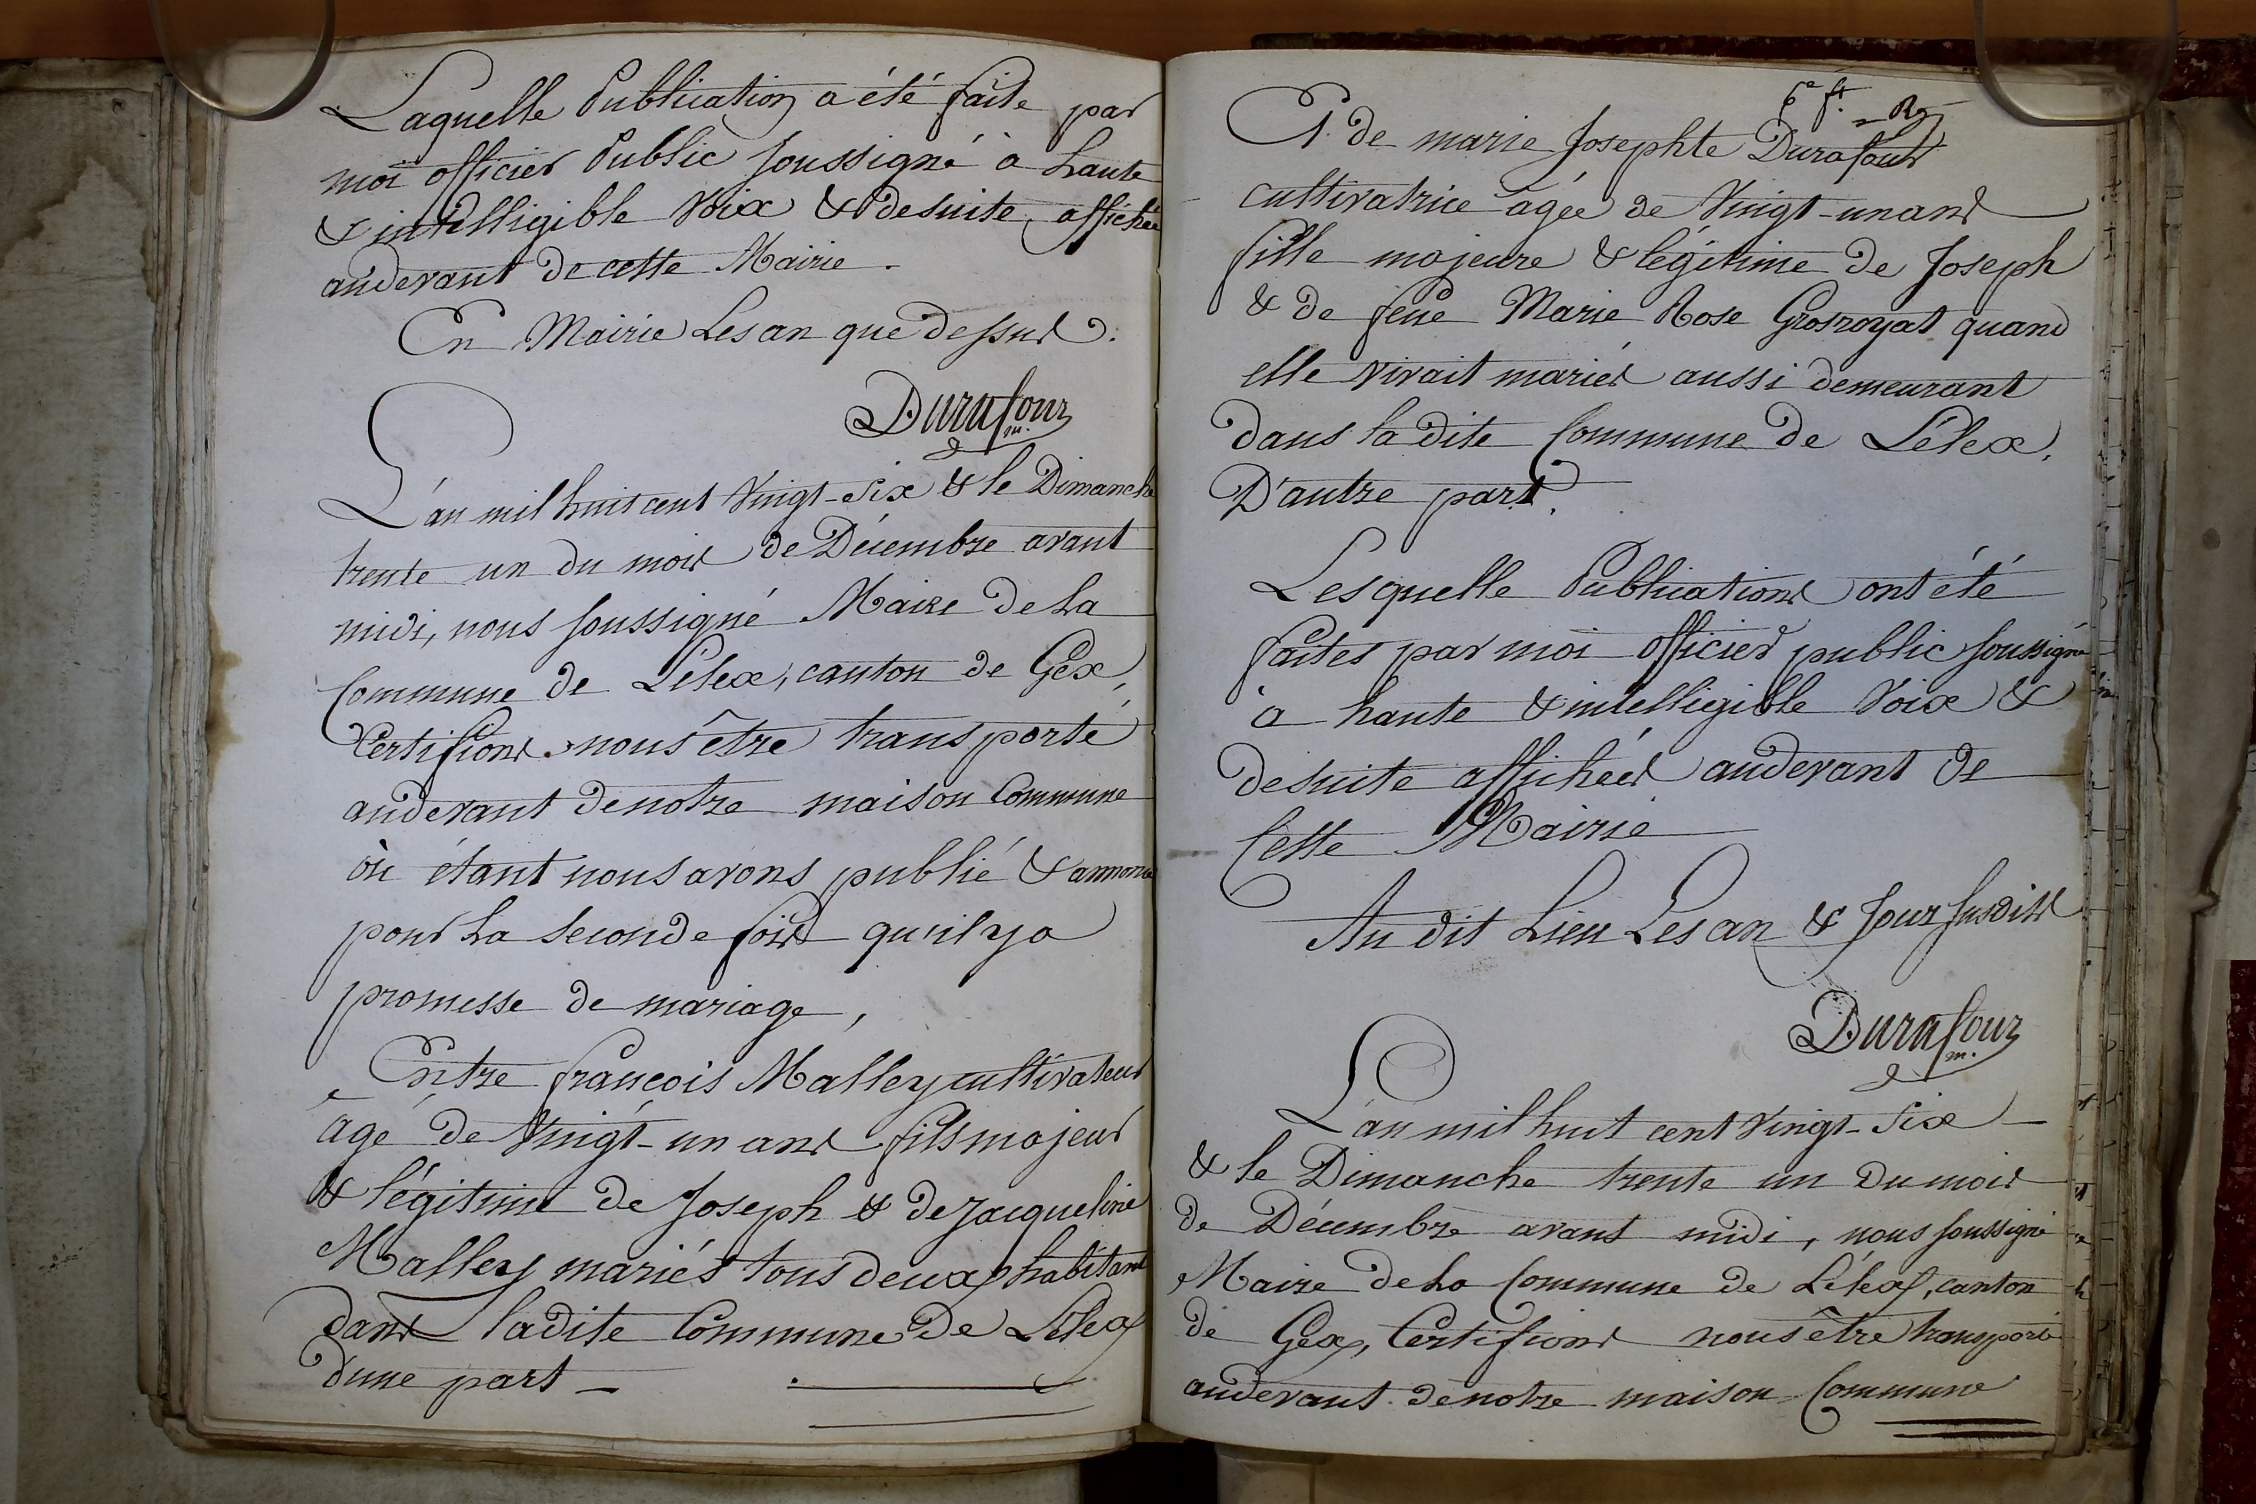 Laquelle Publication a été faite par
moi officier Public soussigné à haute
& intelligible Voix & desuite affichée
audevant de cette Mairie.
En Mairie Les an que dessus.
Durafour
m.
L'an mil huit cent Vingt-Six & le Dimanche
trente un du mois de Décembre avant
midi, nous soussigné Maire de La
Commune de Lélex, canton de Gex,
Certifions nous être transporté
audevant de notre maison Commune
où étant nous avons publié & annoncé
pour La seconde fois qu'il y a
promesse de mariage,
Entre françois Malley cultivateur
âgé de Vingt-un ans fils majeur
& légitime de Joseph & de Jacqueline
Malley mariés tous deux habitant
dans ladite Commune De Lélex
d'une part
Et de marie Josephte Durafour
cultivatrice agée de Vingt-un ans
fille majeure & légitime de Joseph
& de feue Marie Rose Grosroyat quand
elle vivait mariés aussi demeurant
dans la dite Commune de Lélex,
D'autre part.
Lesquelle Publications ont été
faites par moi officier public soussigné
à haute & intelligible Voix &
desuite affichées audevant de
Cette Mairie
Au dit Lieu Les an & Jour susdits
Durafour
m.
L'an mil huit cent Vingt-Six
& le Dimanche trente un du mois
de Décembre avant midi, nous soussigné
Maire de La Commune de Lélex, canton
de Gex, Certifions nous être transporté
audevant de notre maison Commune